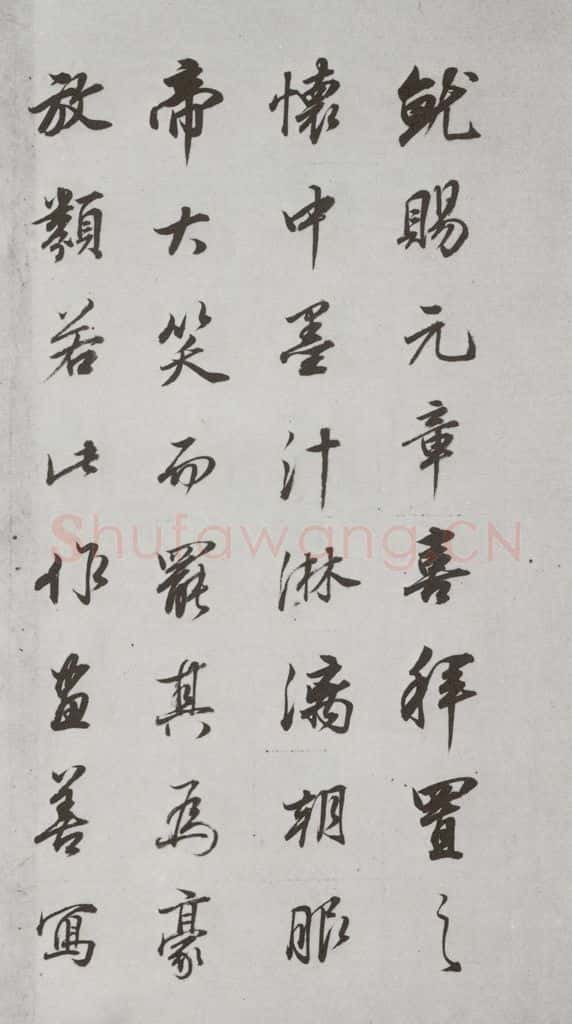 就賜元章喜拜置之
懷中墨汁淋漓朝服
帝大笑而罷其為豪
放類若此作畫善寫
Shufawang.CN